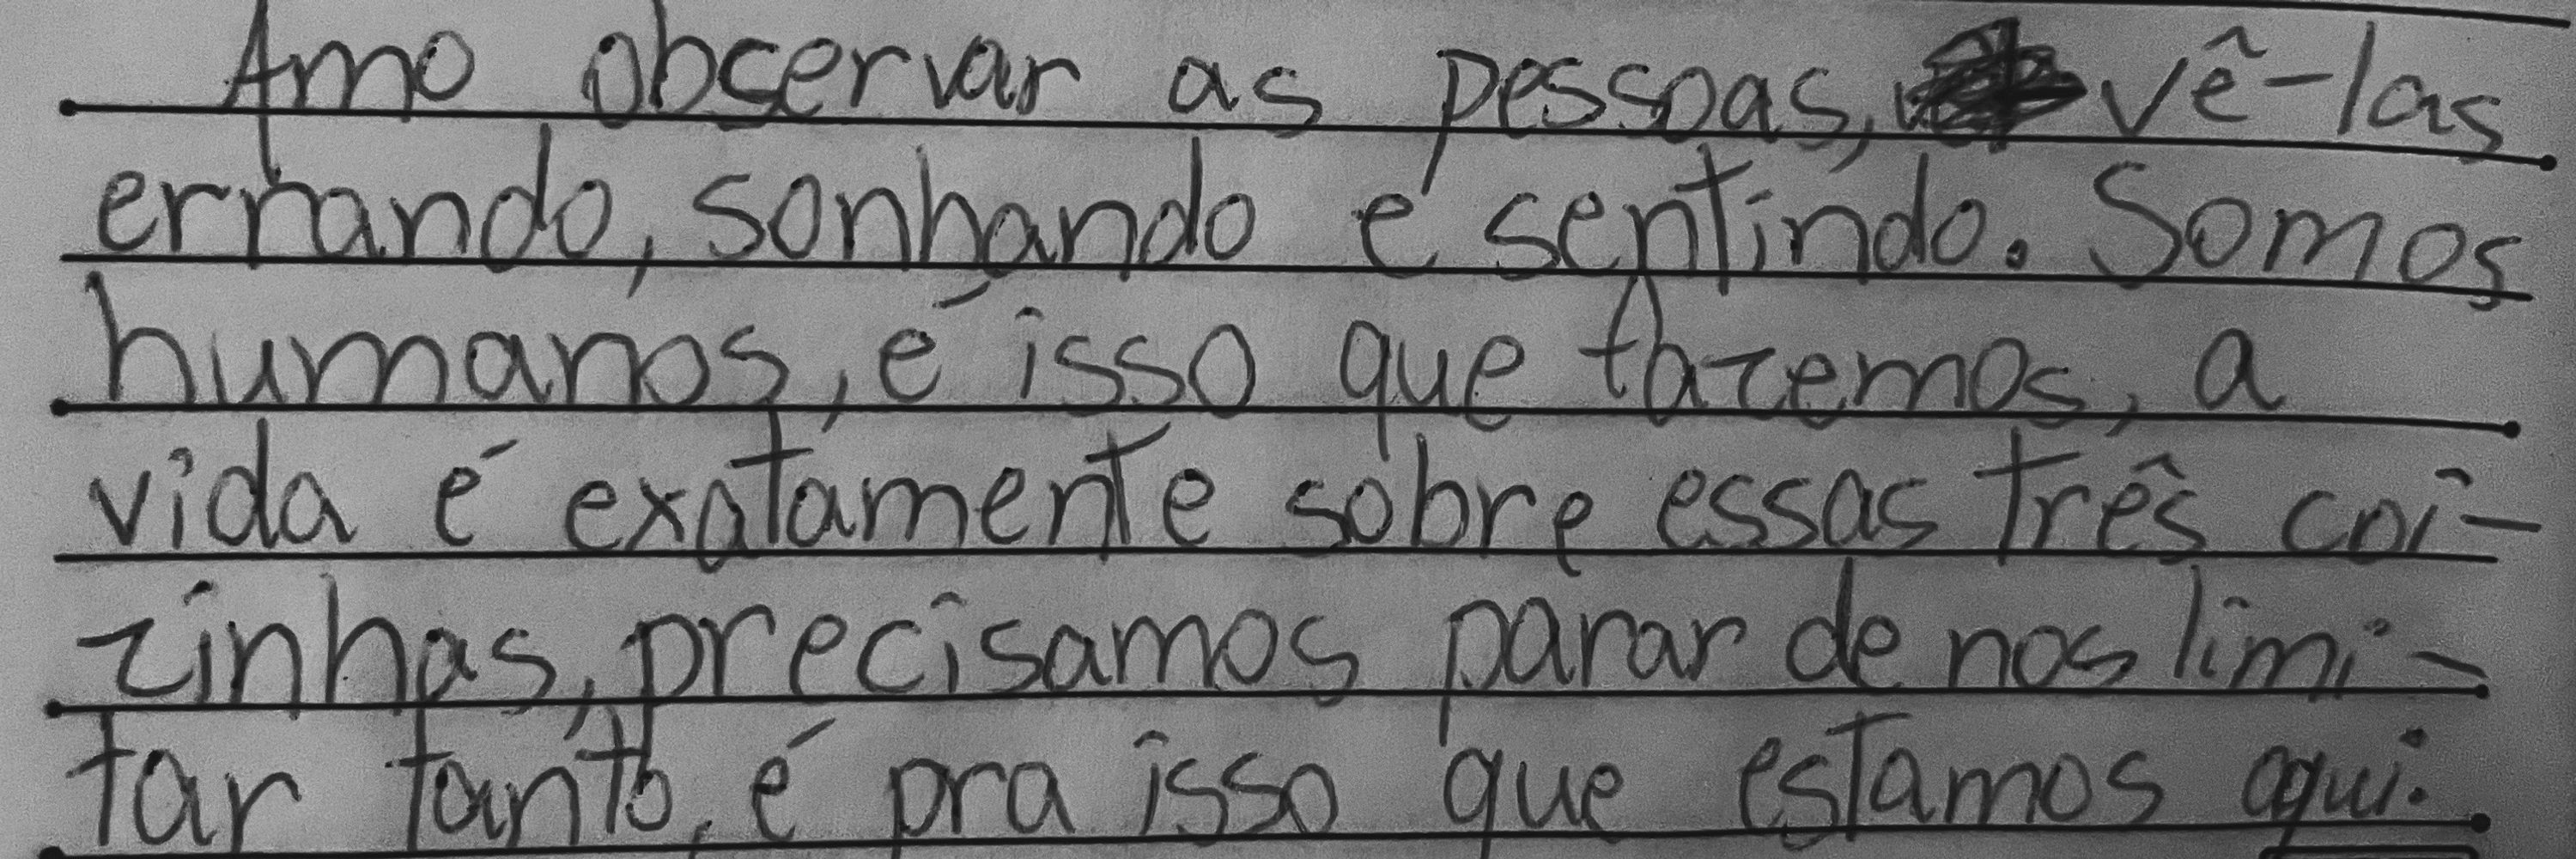 Amo observar as pessoas, vê-las
errando, sonhando e sentindo. Somos
humanos, é isso que fazemos, a
vida é exatamente sobre essas três coi-
zinhas, precisamos parar de nos limi-
tar tanto, é pra isso que estamos aqui.